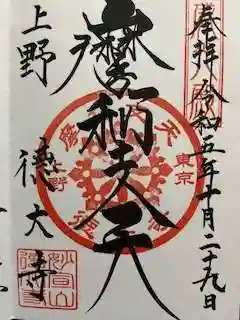 奉拝 令和五年十月二十九日
摩利支天
上野
德大寺
東京
上野